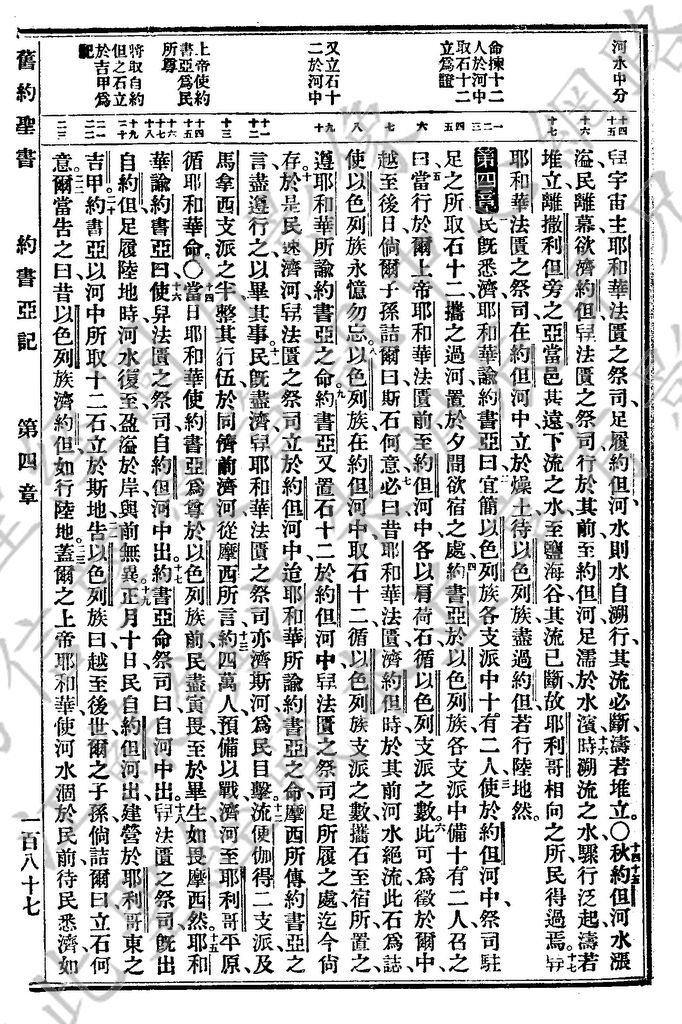 河水中分
命揀十二
人於河中
取石十二
立爲證
又立石十
二於河中
上帝使約
書亞爲民
所尊
將取自約
但之石立
於吉甲爲
記
舁宇宙主耶和華法匱之祭司足履約但河水則水自溯行其流必斷濤若堆立。〇秋約但河水漲
溢民離幕欲濟約但舁法匱之祭司行於其前至約但河足濡於水濱時溯流之水驟行泛起濤若
堆立離撒利但旁之亞當邑甚遠下流之水至鹽海谷其流已斷故耶利哥相向之所民得過焉舁
耶和華法匱之祭司在約但河中立於燥土待以色列族盡過約但若行陸地然。
第四章 民旣悉濟耶和華諭約書亞曰宜簡以色列族各支派中十有二人使於約但河中祭司駐
足之所取石十二攜之過河置於夕間欲宿之處約書亞於以色列族各支派中備十有二人召之
曰當行於爾上帝耶和華法匱前至約但河中各以肩荷石循以色列支派之數此可爲徵於爾中
越至後日倘爾子孫詰爾曰斯石何意必曰昔耶和華法匱濟約但時於其前河水絕流此石爲誌
使以色列族永憶勿忘。以色列族在約但河中取石十二循以色列族支派之數攜石至宿所置之
遵耶和華所諭約書亞之命約書亞又置石十二於約但河中舁法匱之祭司足所履之處迄今尙
存於是民速濟河舁法匱之祭司立於約但河中迨耶和華所諭約書亞之命摩西所傳約書亞之
言盡遵行之以畢其事民旣盡濟舁耶和華法匱之祭司亦濟斯河爲民目擊流便伽得二支派及
馬拿西支派之半整其行伍於同儕前濟河從摩西所言約四萬人預備以戰濟河至耶利哥平原
循耶和華命〇當日耶和華使約書亞爲尊於以色列族前民盡寅畏至於畢生如畏摩西然耶和
華諭約書亞曰使舁法匱之祭司自約但河中出約書亞命祭司曰自河中出舁法匱之祭司旣出
自約但足履陸地時河水復至盈溢於岸與前無異正月十日民自約但河出建營於耶利哥東之
吉甲約書亞以河中所取十二石立於斯地告以色列族曰越至後世爾之子孫倘詰爾曰立石何
意爾當告之曰昔以色列族濟約但如行陸地蓋爾之上帝耶和華使河水涸於民前待民悉濟如
舊約聖書 約書亞記 第四章 一百八十七